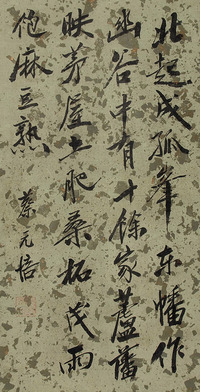 北起成孤峯東幡作
幽谷中有十餘家蘆藩
映茅屋土肥桑柘茂雨
飽麻豆熟
蔡元培